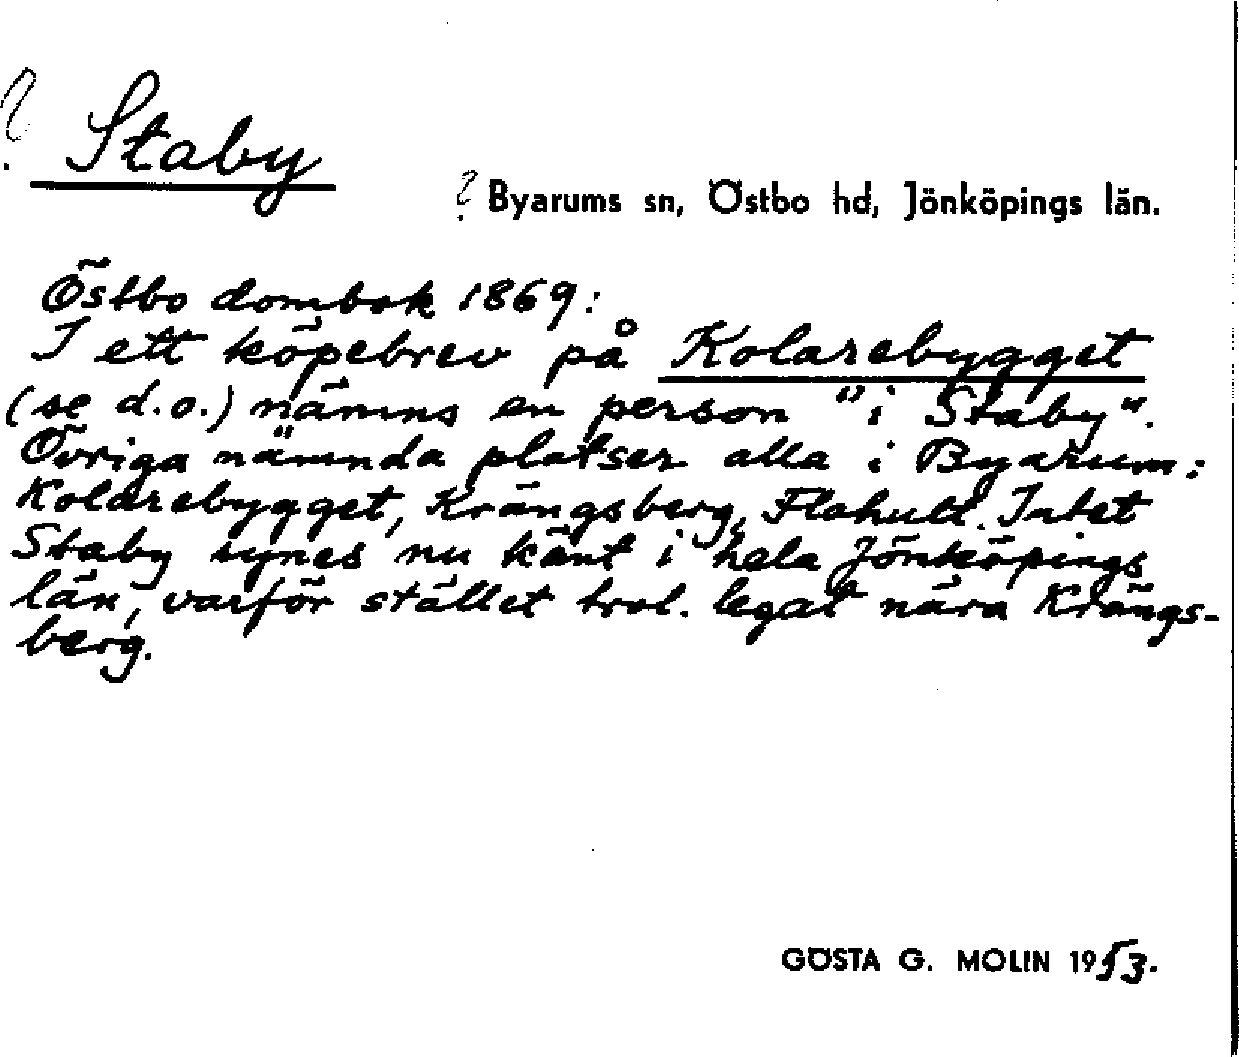 ? Staby
? Byarums sn, Östbo hd, Jönköpings län.
Östbo dombok 1869:
I ett köpebrev på Kolarebygget
(se d.o.) nämns en person "i Staby".
Övriga nämnda platser alla i Byarum:
Kolarebygget, Krängsberg, Flahult. Intet
Staby synes nu känt i hela Jönköpings
län, varför stället trol. legat nära Krängs-
berg.
GÖSTA G. MOLIN 1953.